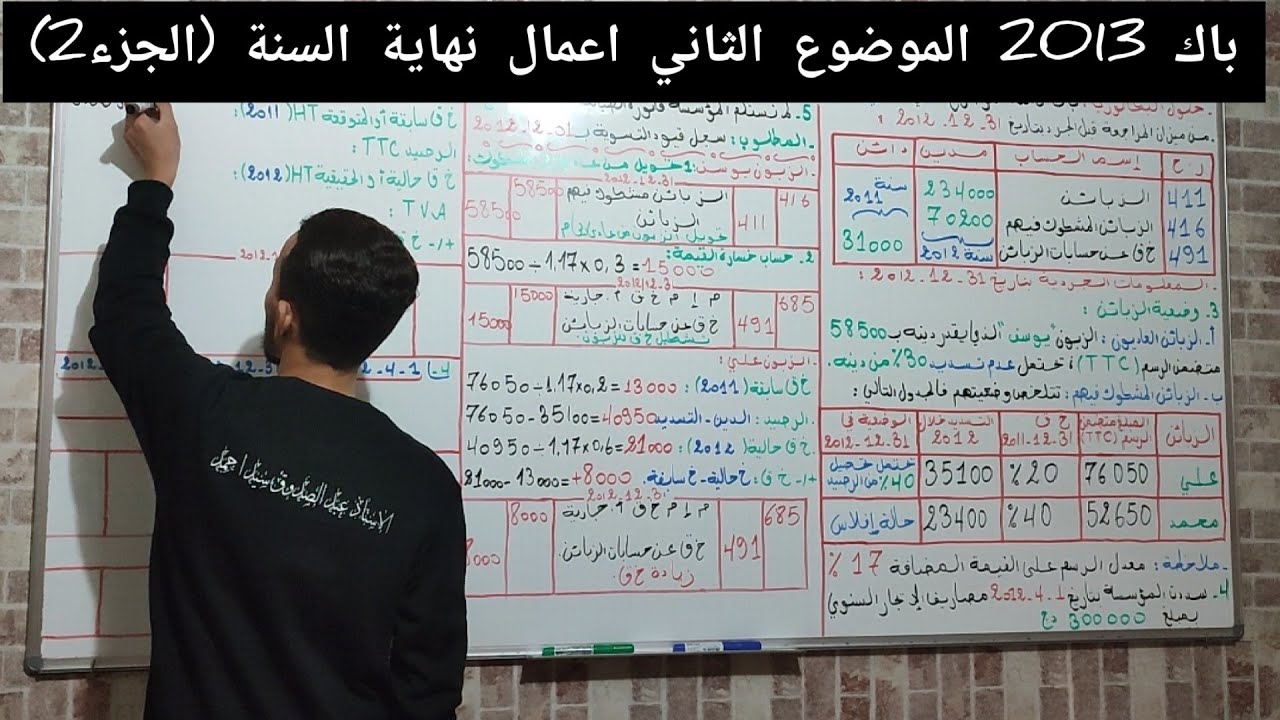 باك 2013 الموضوع الثاني اعمال نهاية السنة (الجزء2)
من ميزان المراجعة قبل الجرد بتاريخ 31-12-2012:
ر ح
إسم الحساب
مدين
دائن
411
الزبائن
234000
سنة 2011
416
الزبائن المشكوك فيهم
70200
491
خ ق عن حسابات الزبائن
سنة 2012
31000
المعلومات الجردية بتاريخ 31-12-2012:
3. وضعية الزبائن:
أ- الزبائن العاديون: الزبون "يوسف" الذي يقدر دينه بـ 58500
متضمن الرسم (TTC)، يحتمل عدم تسديد 30% من دينه.
ب- الزبائن المشكوك فيهم: تتلخص وضعيتهم في الجدول التالي:
الزبائن
المبلغ متضمن الرسم (TTC)
خ ق 31-12-2011
التسديد خلال 2012
الوضعية في 31-12-2012
علي
76050
20%
35100
يحتمل تحصيل 40% من الرصيد
محمد
52650
40%
23400
حالة إفلاس
ملاحظة: معدل الرسم على القيمة المضافة 17%
4- سددت المؤسسة بتاريخ 1-4-2012 مصاريف الإيجار السنوي
بمبلغ 300000 دج
5. لم تستلم المؤسسة فاتورة
المطلوب: سجل قيود التسوية بـ
الزبون يوسف: 1 تحويل من
2012-12-31
416
الزبائن مشكوك فيهم
58500
411
الزبائن
58500
تحويل الزبون من عادي إلى م
2. حساب خسارة القيمة:
58500÷1.17×0,3=15000
2012/12/31
685
م إ م خ ق أ. جارية
15000
491
خ ق عن حسابات الزبائن
15000
تشكيل خ ق للزبون.
الزبون علي:
خ ق سابقة (2011): 76050÷1.17×0,2=13000
الرصيد: الدين - التسديد 76050-35100=40950
خ ق حالية (2012): 40950÷1,17×0,6=21000
+/- خ ق: خ حالية - خ سابقة. 21000-13000=+8000
2012-12-31
685
م إ م خ ق أ. جارية
8000
491
خ ق عن حسابات الزبائن.
8000
زيادة خ ق.
خ ق سابقة أو المتوقعة HT (2011):
الرصيد TTC:
خ ق حالية أو الحقيقية HT (2012):
T.V.A:
+/- خ ق
4-
الاستاذ عبد الصدوق سيد احمد